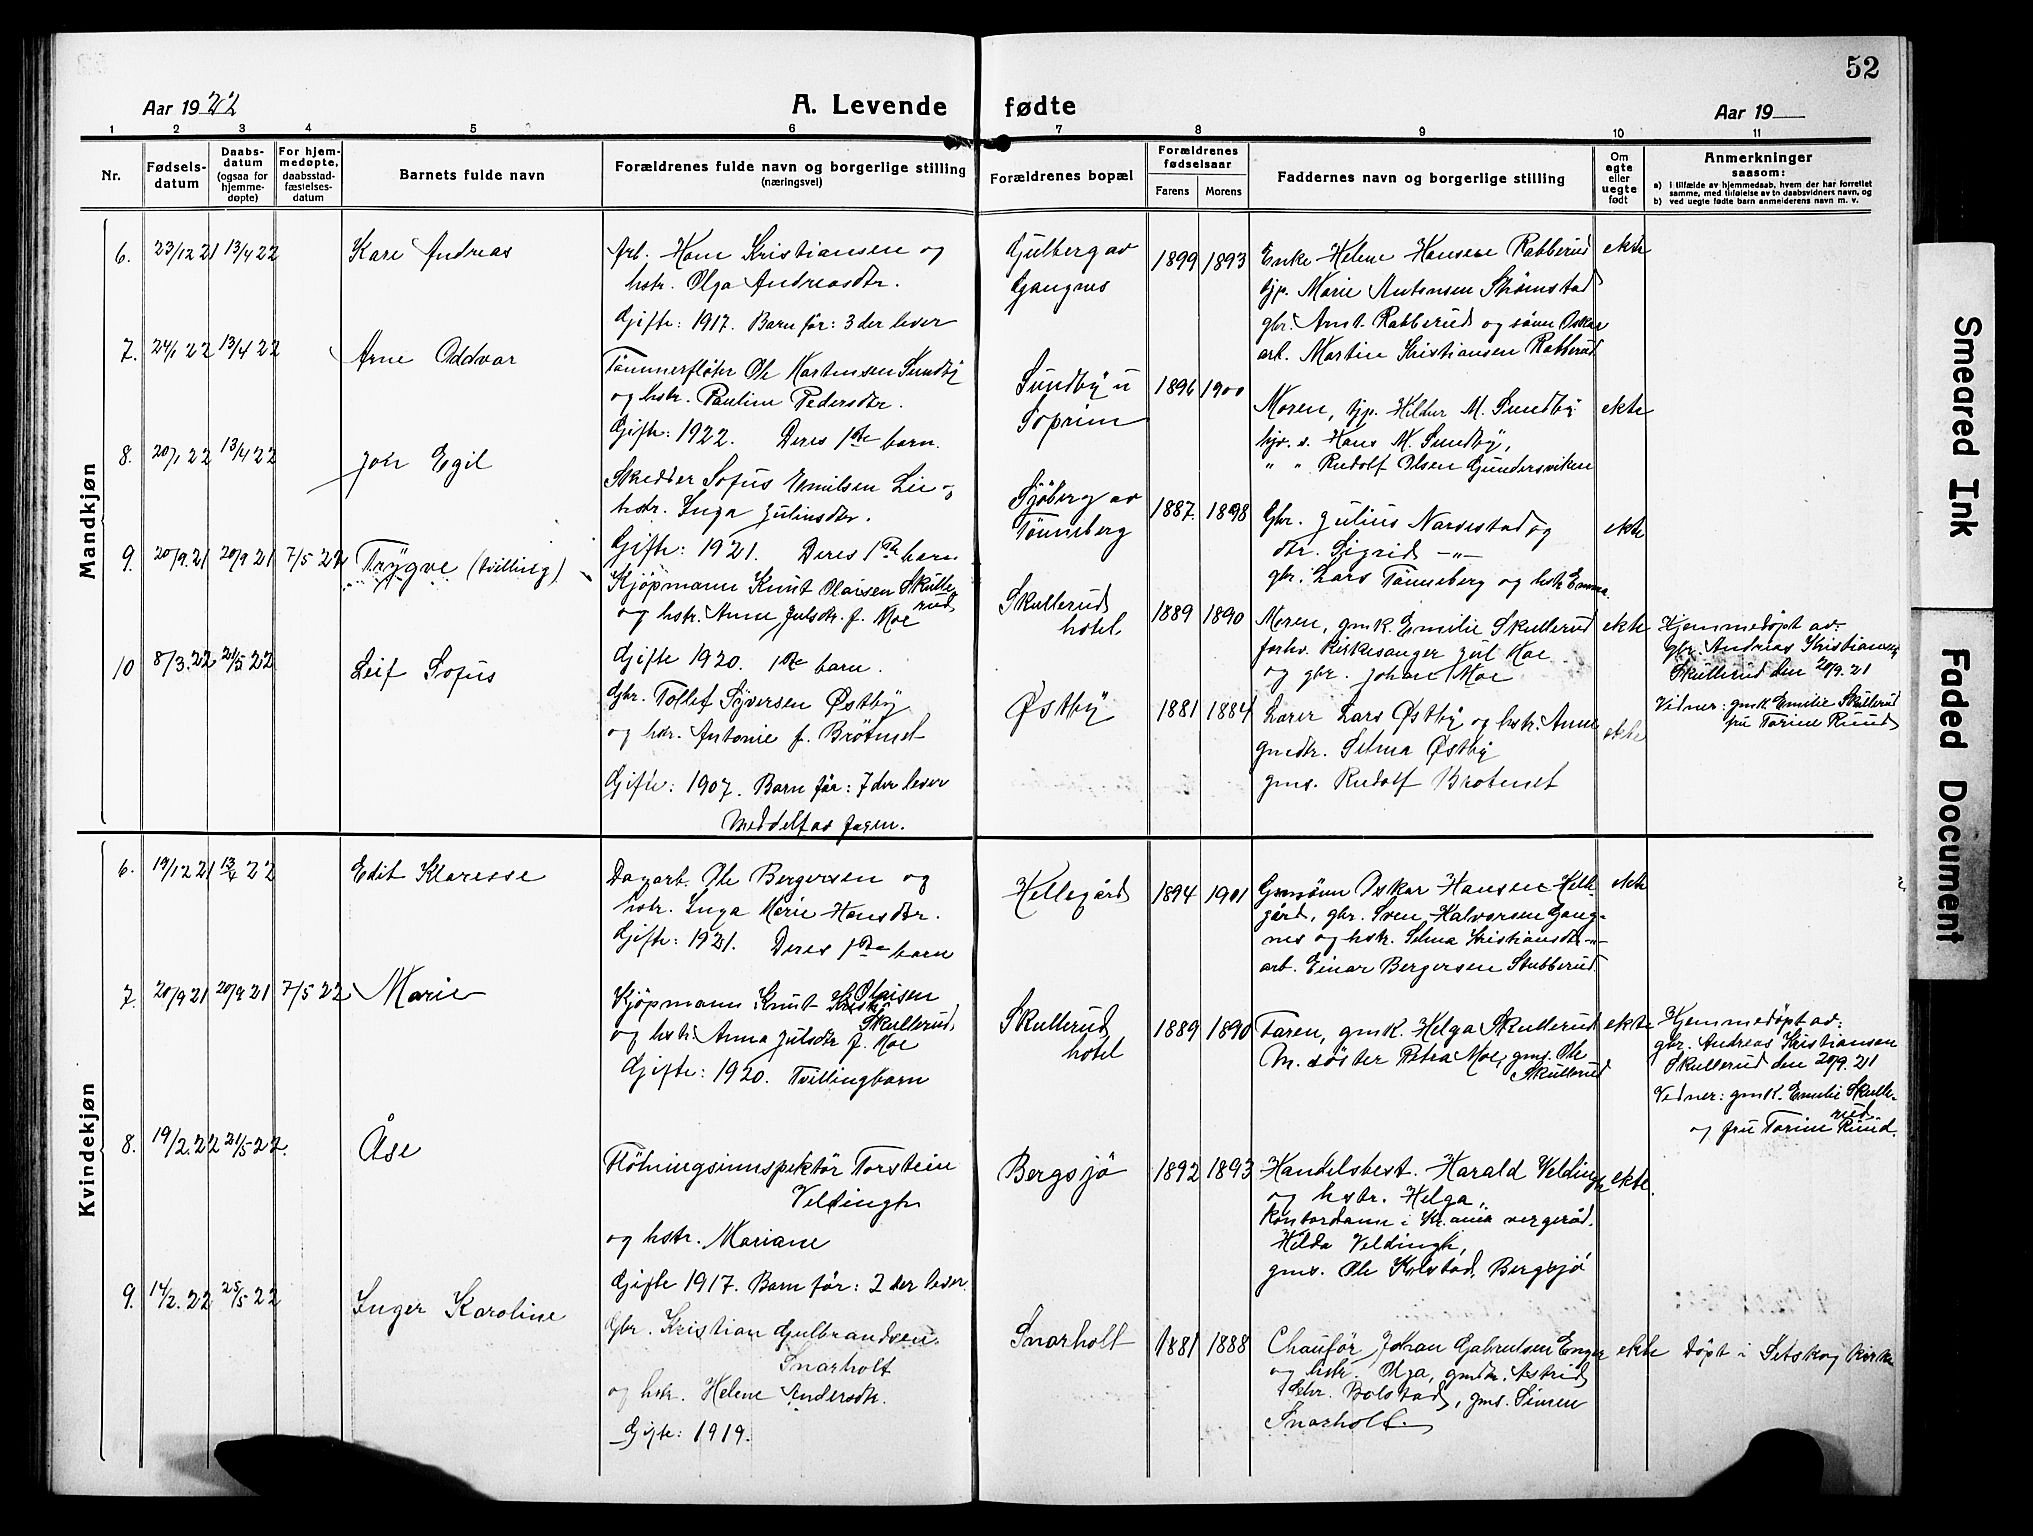 52
Aar 1922
A. Levende fødte
Aar 19
1 2 3 4 5 6 7 8 9 10 11
Nr.
Fødsels-
datum
Daabs-
datum
(ogsaa for
hjemme-
døpte)
For hjem-
medøpte,
daabsstad-
fæstelses-
datum
Barnets fulde navn
Forældrenes fulde navn og borgerlige stilling
(næringsvei)
Forældrenes bopæl
Forældrenes
fødselsaar
Farens Morens
Faddernes navn og borgerlige stilling
Om
egte
eller
uegte
født
Anmerkninger
saasom:
a) i tilfælde av hjemmedaab, hvem der har forrettet
samme, med tilføielse av to daabsvidners navn, og
b) ved uegte fødte barn anmelderens navn m. v.
Mandkjøn
6. 23/12 21 13/4 22 Kare Andreas
Arb. Hans Kristiansen og
hstr. Olga Andreasdtr.
Gifte: 1917. Barn før: 3 der lever
Gulberg av
Gangnes
1899 1893
Enke Helene Hansen Rabberud
tjp. Marie Antonsen Strømstad
gbr. Amt. Rabberud og sønn Oskar
arb. Martin Kristiansen Rabberud
ekte
7. 24/1 22 13/4 22 Arne Oddvar
Tømmerfløter Ole Martinsen Sundby
og hstr. Pauline Pedersdtr.
Gifte: 1922. Deres 1ste barn.
Sundby u
Soprim
1896 1900
Moren, tjp. Hildur M. Sundby
hjv. s. Hans M. Sundby,
" " Rudolf Olsen Gundersviken
ekte
8. 20/1 22 13/4 22 Jon Egil
Skredder Sofus Emilsen Lie og
hstr. Inga Juliusdtr.
Gifte: 1921. Deres 1ste barn
Sjøberg av
Tønneberg
1887. 1898
Gbr. Julius Narvestad og
dtr. Sigrid -"-
gbr. Lars Tønneberg og hstr Emma
ekte
9. 20/9. 21 20/9 21 7/5 22 Trygve (tvilling)
Kjøpmann Knut Olaisen Skulle-
rud
og hstr. Anne Julsdtr. f. Moe
Gifte 1920. 1ste barn.
Skullerud
hotel
1889 1890
Moren, gmk. Emilie Skullerud
forhv. kirkesanger Jul Moe
og gbr. Johan Moe
ekte
Hjemmedøpt av:
gbr. Andreas Kristiansen
Skullerud den 20/9. 21
Vidner: gmk Emilie Skullerud
fru Torine Ruud
10 8/3. 22 21/5 22 Leif Sofus
Gbr. Tollef Syversen Østby
og hstr. Antonie f. Brøtmet
Gifte: 1907. Barn før: 7 der lever
Østby
1881 1884
Lærer Lars Østby og hstr. Anne
gmdtr. Selma Østby
gms. Rudolf Brøtmet
ekte
Kvindekjøn
6. 19/12 21 13/4 22 Edit Klaresse
Dagarb. Ole Bergersen og
hstr. Inga Marie Hansdtr.
Gifte: 1921. Deres 1ste barn
Hellegård
1894 1901
Gmsønn Oskar Hansen Helle-
gård, gbr. Sven Halvorsen Gang-
nes og hstr. Selma Kristiansdtr -"-
arb. Einar Bergersen Stubberud.
ekte
7. 20/9 21 20/9 21 7/5 22 Marie
Kjøpmann Knut Olaisen
Skullerud,
og hstr. Anna Julsdtr f. Moe
Gifte: 1920. Tvillingbarn
Skullerud
hotel
1889 1890
Faren, gmk. Helga Skullerud
m. søster Petra Moe, gms. Ole
Skullerud
ekte
Hjemmedøpt av:
gbr. Andreas Kristiansen
Skullerud den 20/9. 21
Vidner: gmk. Emilie Skulle-
rud
og fru Torine Ruud.
8. 19/2. 22 21/5 22. Åse
Fløtningsinnspektør Torstein
Veldingh
og hstr. Mariane
Gifte 1917. Barn før: 2 der lever
Bergsjø
1892 1893
Handelsbest. Harald Veldingh
og hstr. Helga,
Kontordame i Kr.ania
Hilda Veldingh,
gms. Ole Kolstad, Bergsjø
ekte.
9. 14/2. 22 25/5 22 Inger Karoline
Gbr. Kristian Gulbrandsen
Snarholt
og hstr. Helene Andersdtr.
Gifte: 1919.
Snarholt
1881 1888
Chaufør Johan Gabrielsen Enger
og hstr. Olga, gmdtr. Astrid
Bolstad, gms. Simen
Snarholt.
ekte
Døpt i Setskog kirke
Smeared Ink
Faded Document